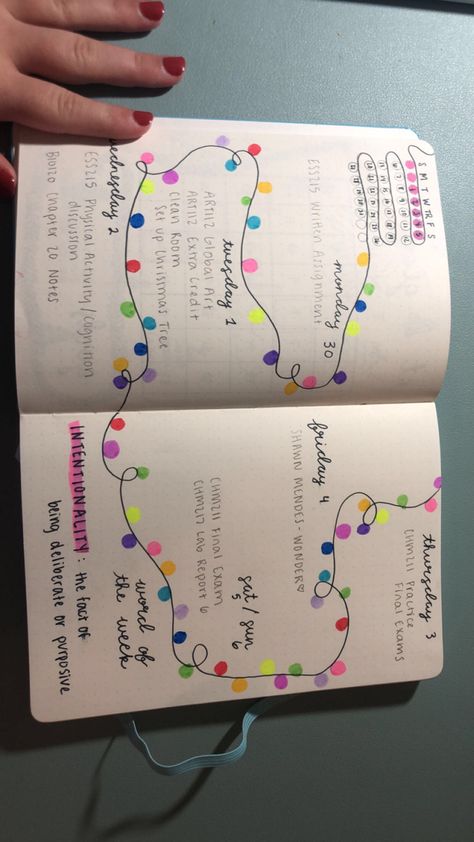 S M T W T R F S
monday 30
ESS215 Written Assignment
tuesday 1
ART112 Global Art
ART112 Extra Credit
Clean Room
Set up Christmas Tree
wednesday 2
ESS215 Physical Activity/Cognition
discussion
BIO120 Chapter 20 Notes
thursday 3
CHM211 Practice
Final Exams
friday 4
SHAWN MENDES - WONDER♡
sat/sun
5 6
CHM211 Final Exam
CHM217 Lab Report 6
word of
the week
INTENTIONALITY: the fact of
being deliberate or purposive